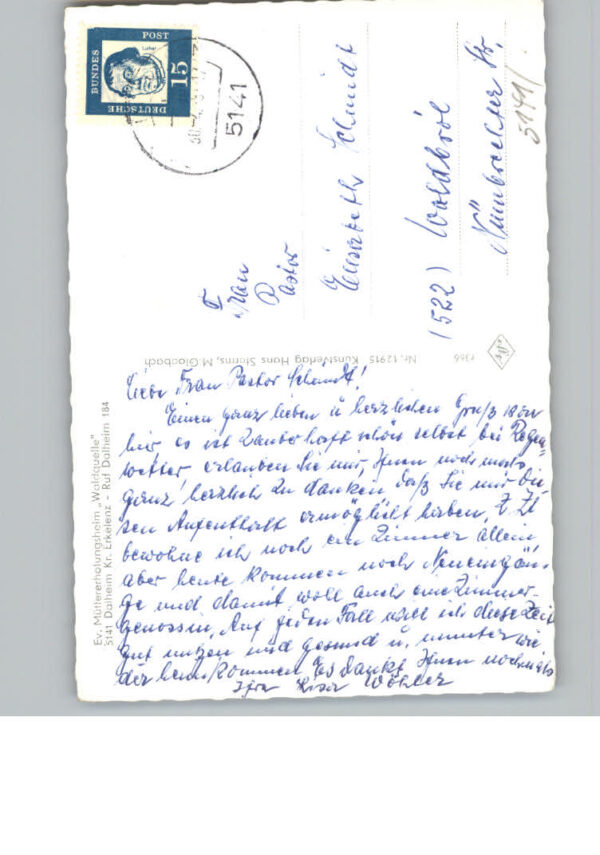 Ev. Müttererholungsheim „Waldquelle"
5141 Dalheim Kr. Erkelenz - Ruf Dalheim 184
Liebe Frau Pastor Schmidt!
Einen ganz lieben u herzlichen Gruß von
hier es ist zauberhaft schön selbst bei Regen
wetter, erlauben Sie mir, Ihnen nochmals
ganz herzlich zu danken, daß Sie mir die
sen Aufenthalt ermöglicht haben, z. Zt
bewohne ich noch ein Zimmer allein
aber heute kommen noch Neueingän-
ge und damit woll auch eine Zimmer-
genossin, Auf jeden Fall will ich diese Zeit
gut nutzen und gesund u. munter wie
der heimkommen, Es dankt Ihnen nochmals
Ihre Wöhler
Nr. 12915 Kunstverlag Hans Storms, M.Gladbach
DEUTSCHE BUNDES POST
15
Luther
5141
Frau
Pastor
Elisabeth Schmidt
(522) Waldbröl
Nümbrechter Str.
5141/